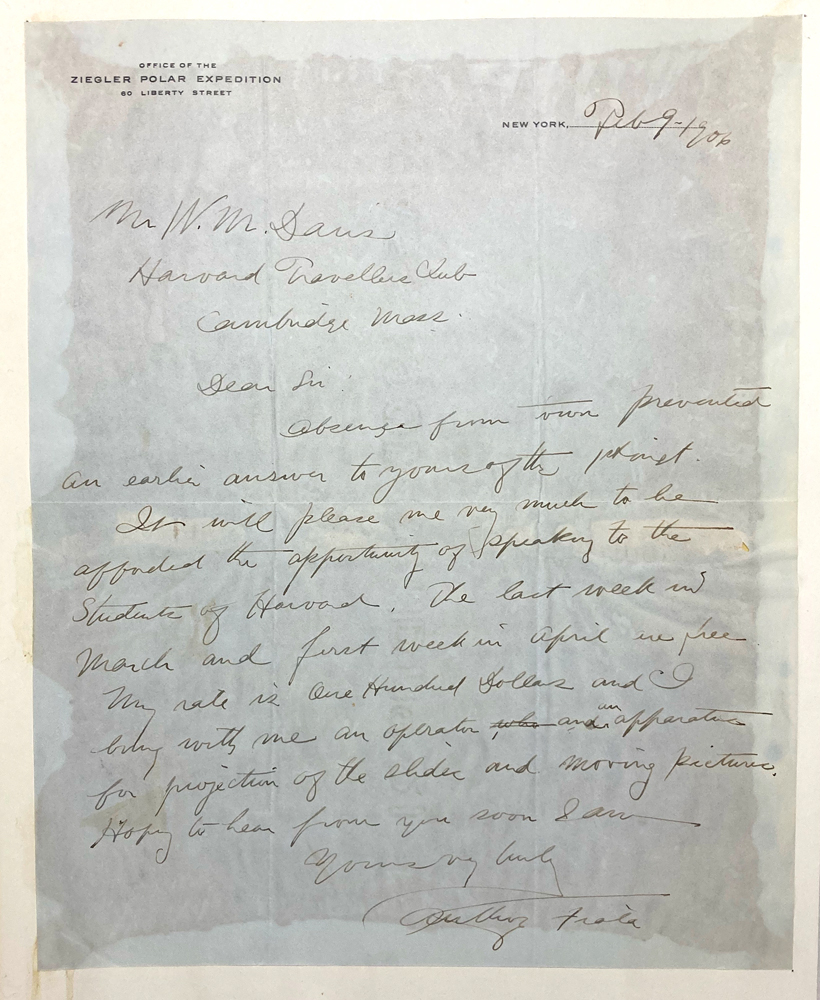 OFFICE OF THE
ZIEGLER POLAR EXPEDITION
60 LIBERTY STREET
NEW YORK, Feb 9-1906
Mr W. M. Davis
Harvard Travellers Club
Cambridge Mass.
Dear Sir:
Absence from town prevented
an earlier answer to yours of the inst.
It will please me very much to be
afforded the opportunity of speaking to the
Students of Harvard. The last week in
March and first week in April are free
My rate is One Hundred Dollars and I
bring with me an operator who and an apparatus
for projection of the slides and moving pictures.
Hoping to hear from you soon I am
Yours very truly
Anthony Fiala